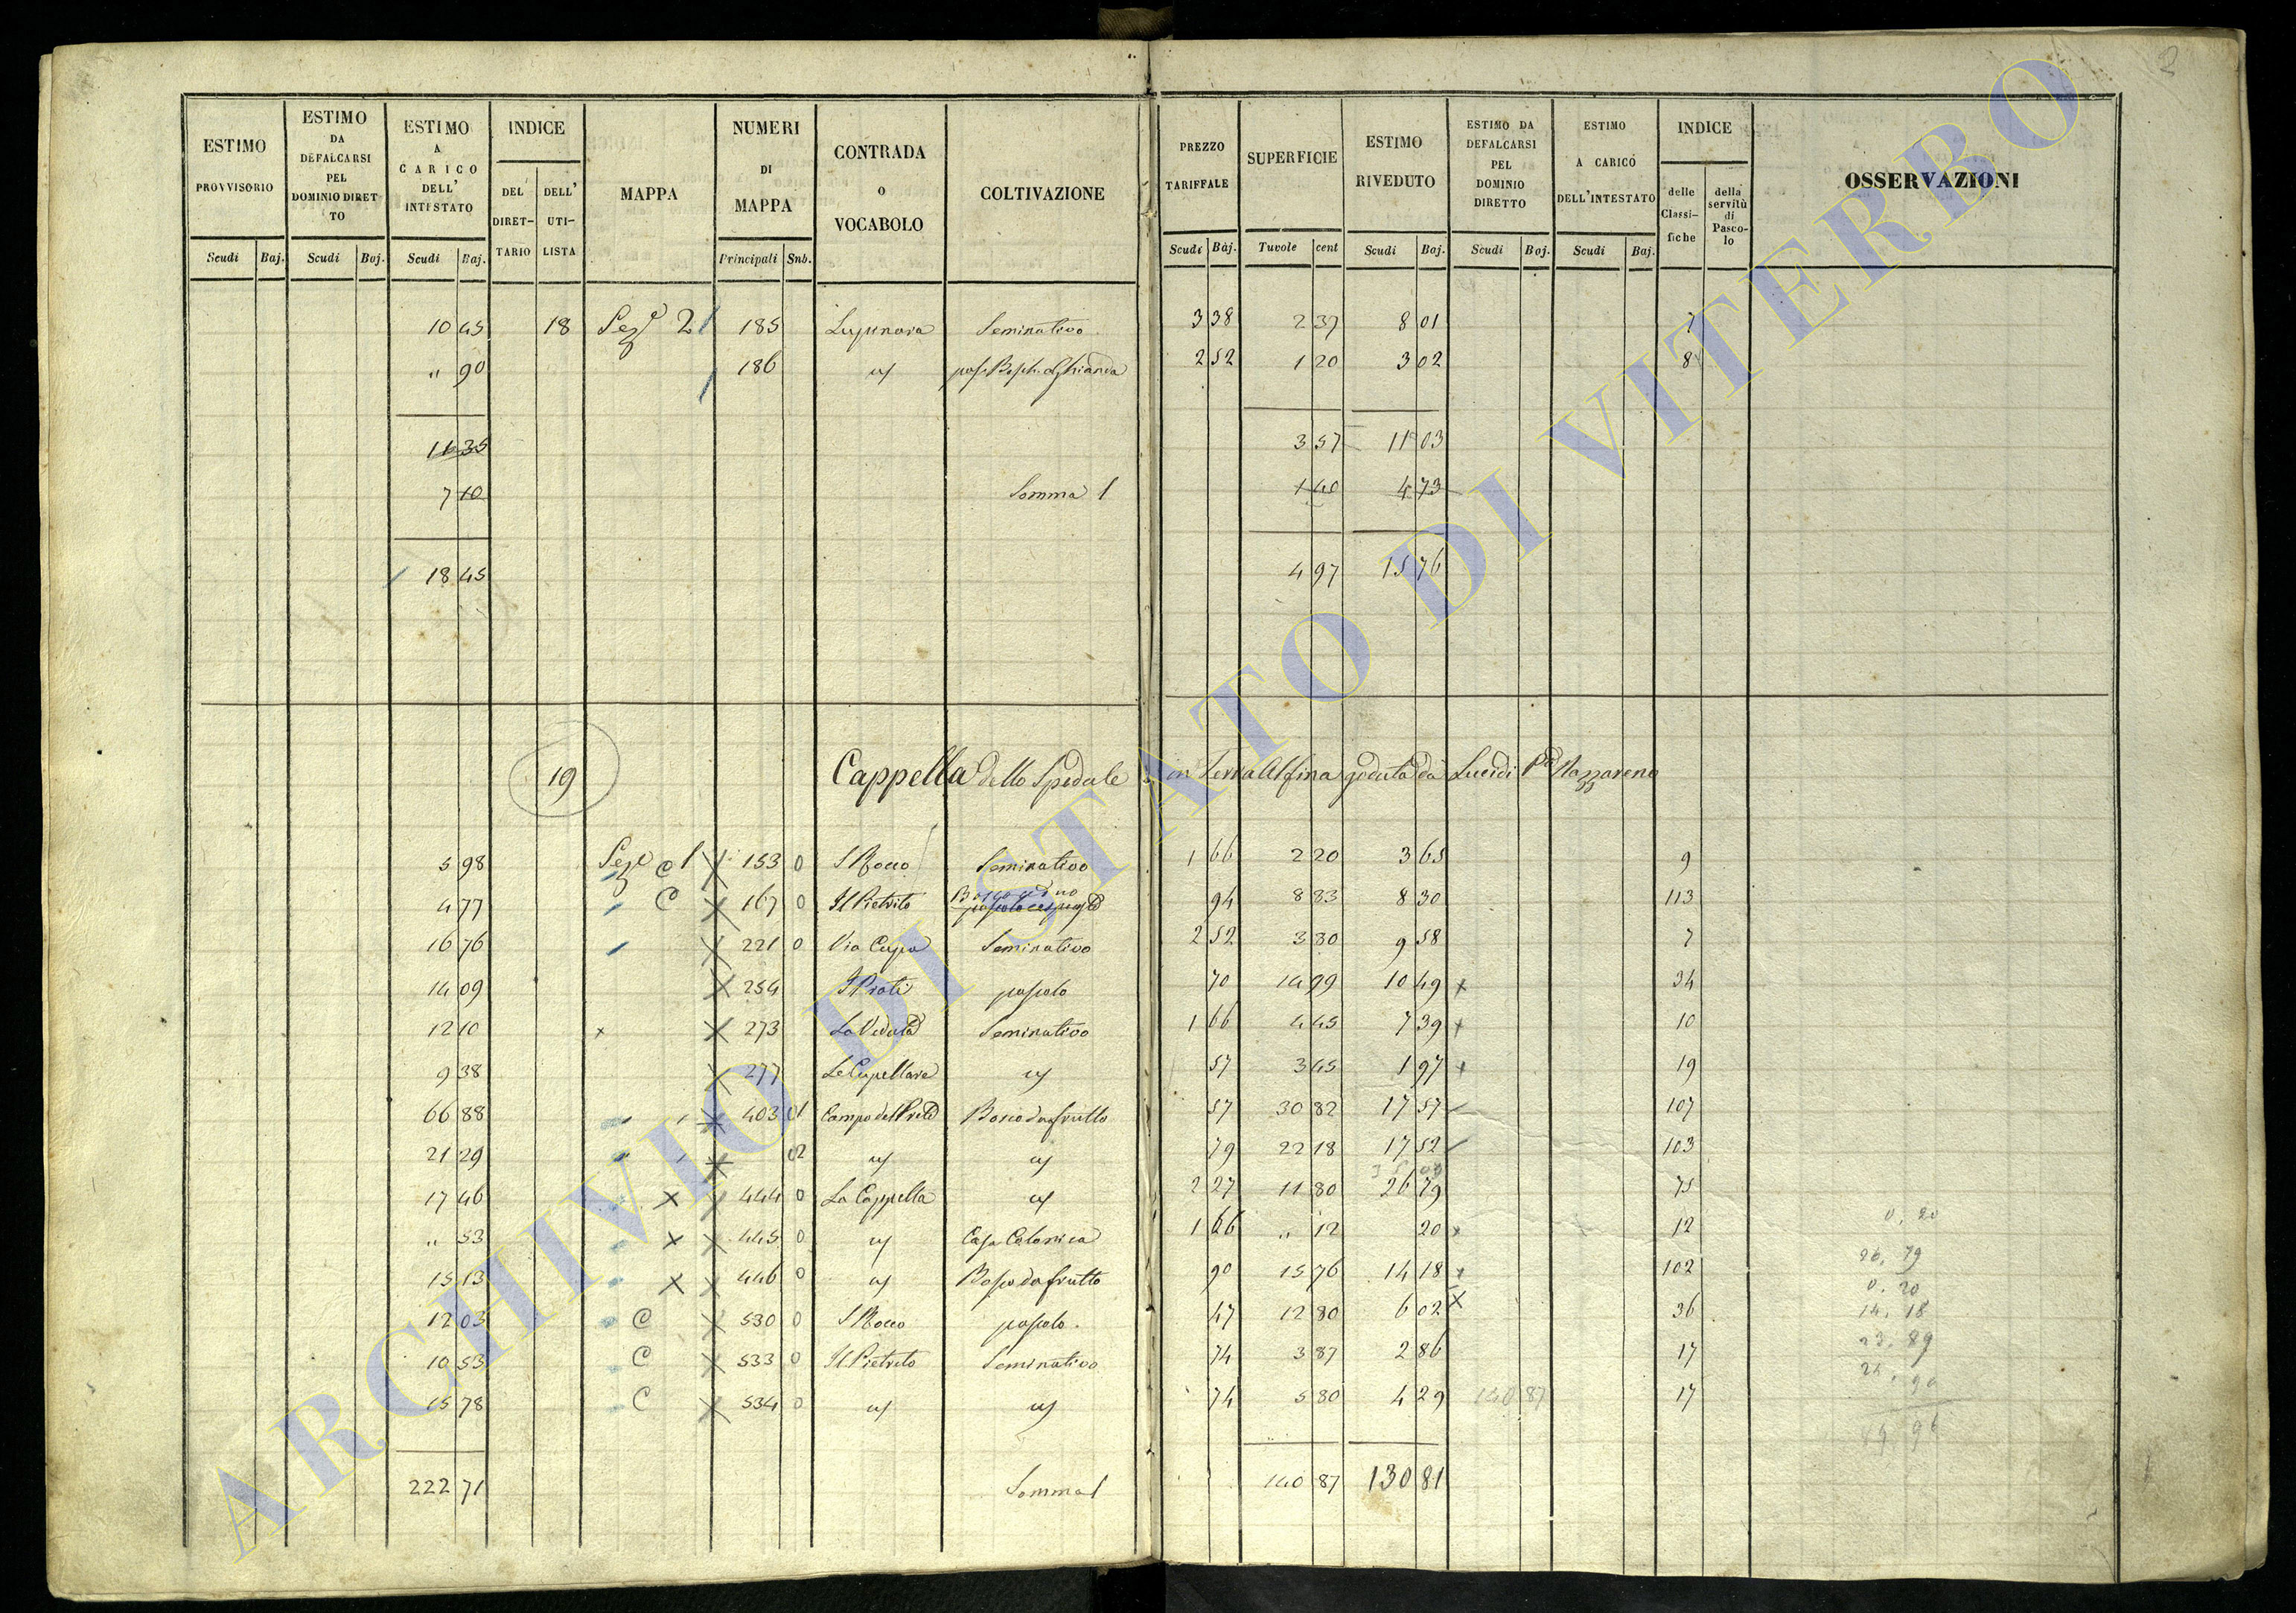 2
ESTIMO PROVVISORIO | ESTIMO DA DEFALCARSI PEL DOMINIO DIRETTO | ESTIMO A CARICO DELL' INTESTATO | INDICE | MAPPA | NUMERI DI MAPPA | CONTRADA O VOCABOLO | COLTIVAZIONE | PREZZO TARIFFALE | SUPERFICIE | ESTIMO RIVEDUTO | ESTIMO DA DEFALCARSI PEL DOMINIO DIRETTO | ESTIMO A CARICO DELL' INTESTATO | INDICE | OSSERVAZIONI
Scudi Baj. | Scudi Baj. | Scudi Baj. | DEL DIRETTARIO | DELL' UTILISTA | Principali Sub. | Scudi Baj. | Tavole cent | Scudi Baj. | Scudi Baj. | Scudi Baj. | delle Classifiche | della servitù di Pascolo
10 45 18 Seze 2 185 Lupinara Seminativo 3 38 2 37 8 01 7
" 90 186 3 2 52 1 20 3 02 8
11 35 3 57 11 03
7 10 Somma 1 1 40 4 73
18 45 4 97 15 76
19 Cappella dello Spedale in Terra Alfina goduta da Lucidi Pd Nazzareno
5 98 Seze C 1 153 0 S Rocco Seminativo 1 66 2 20 3 65 9
4 77 C 167 0 Il Pietreto 94 8 83 8 30 113
16 76 221 0 Via Cupa Seminativo 2 52 3 80 9 58 7
14 09 254 I Prati pascolo 70 14 99 10 49 x 34
12 10 x 273 La Veduta Seminativo 1 66 4 45 7 39 x 10
9 38 277 Le Cupellare 57 3 45 1 97 x 19
66 88 403 01 Campo del Prete Bosco da frutto 57 30 82 17 57 107
21 29 02 79 22 18 17 52 103
17 46 x 444 0 La Cappella 2 27 11 80 26 79 75
" 53 x 445 0 Casa Colonica 1 66 " 12 20 x 12
15 13 x 446 0 Bosco da frutto 90 15 76 14 18 x 102
12 03 C 530 0 S Rocco pascolo. 47 12 80 6 02 x 36
10 53 C 533 0 Il Pietreto Seminativo 74 3 87 2 86 17
15 78 C 534 0 74 5 80 4 29 140 87 17
222 71 Somma 1 140 87 130 81
0. 20
26. 79
0. 20
14. 18
ARCHIVIO DI STATO DI VITERBO